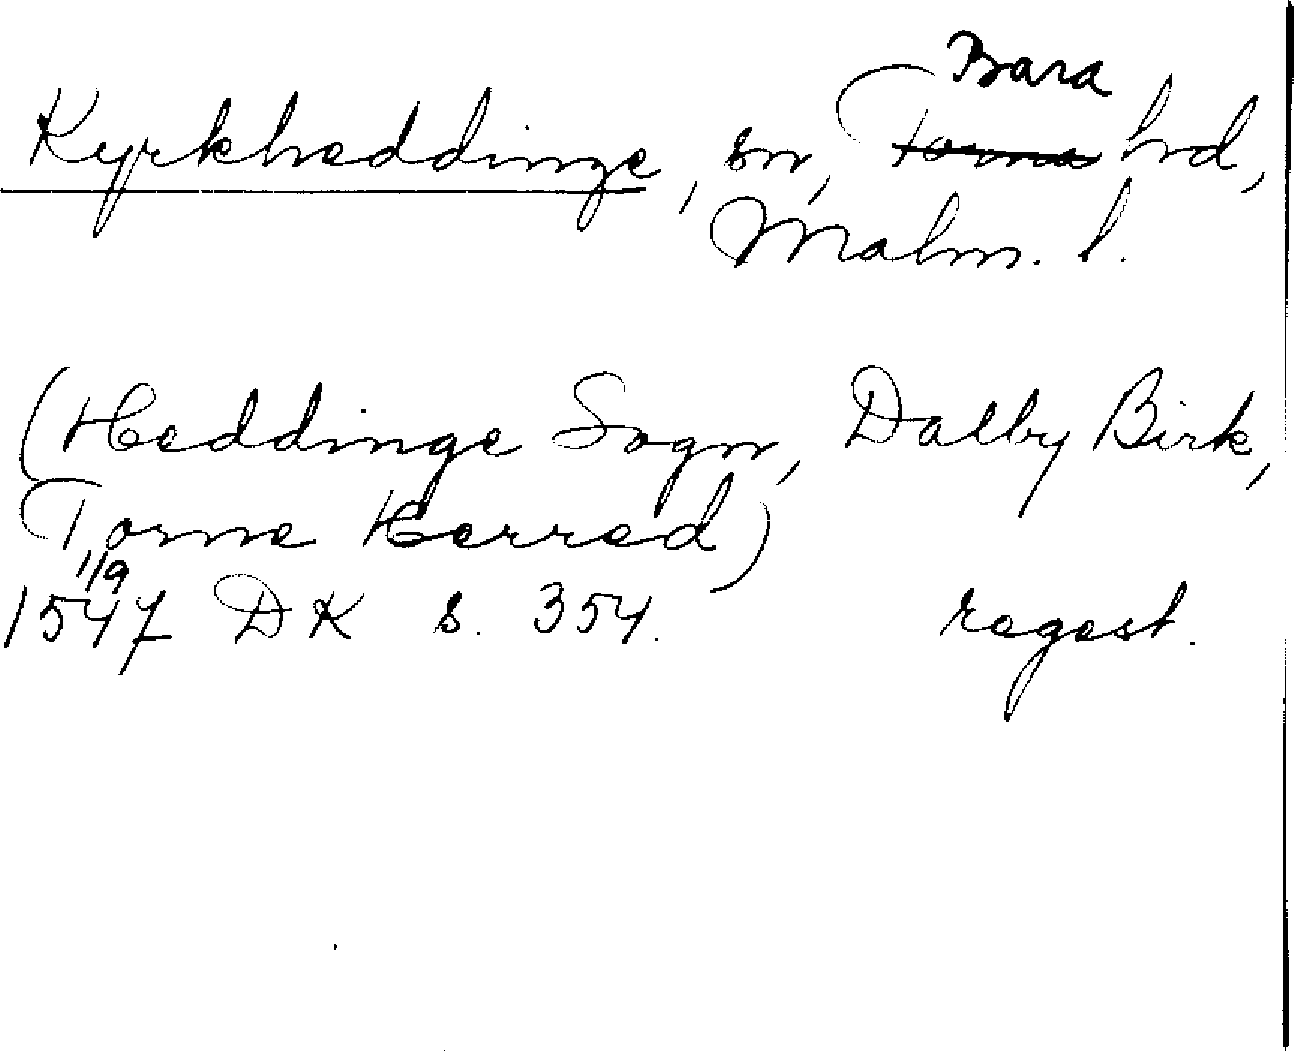 Bara
Kyrkheddinge, sn, Torna hd,
Malm. l.
(Heddinge Sogn, Dalby Birk,
Torne Herred)
1/9
1547 DK s. 354. regest.